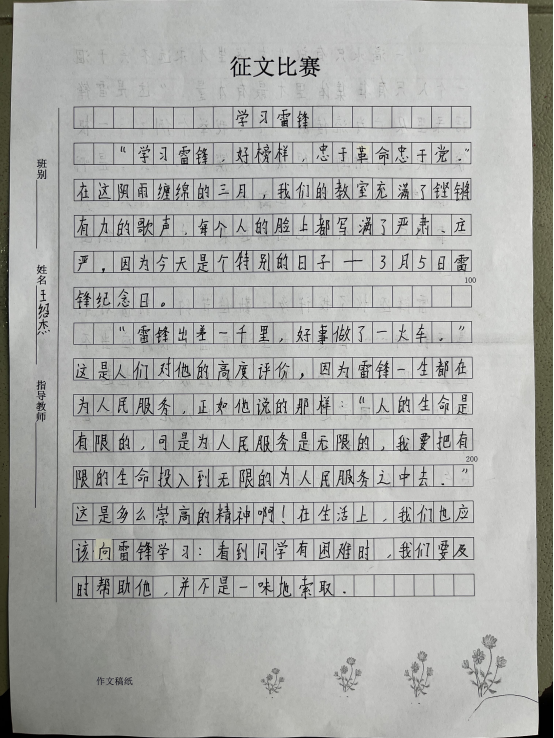 征文比赛
学习雷锋
“学习雷锋，好榜样，忠于革命忠于党。”
在这阴雨缠绵的三月，我们的教室充满了铿锵
有力的歌声，每个人的脸上都写满了严肃、庄
严，因为今天是个特别的日子—3月5日雷
100
锋纪念日。
“雷锋出差一千里，好事做了一火车。”
这是人们对他的高度评价，因为雷锋一生都在
为人民服务，正如他说的那样：“人的生命是
有限的，可是为人民服务是无限的，我要把有
200
限的生命投入到无限的为人民服务之中去。”
这是多么崇高的精神啊！在生活上，我们也应
该向雷锋学习：看到同学有困难时，我们要及
时帮助他，并不是一味地索取.
班别
姓名 王绍杰
指导教师
作文稿纸